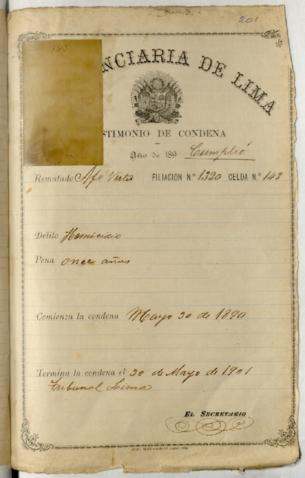 201
NCIARIA DE LIMA
STIMONIO DE CONDENA
Año de 189 Cumplió
Rematado FILIACION N.º 1320 CELDA N.º 142
Delito Homicidio
Pena once años
Comienza la condena Mayo 30 de 1890
Termina la condena el 30 de Mayo de 1901
Tribunal Lima
EL SECRETARIO